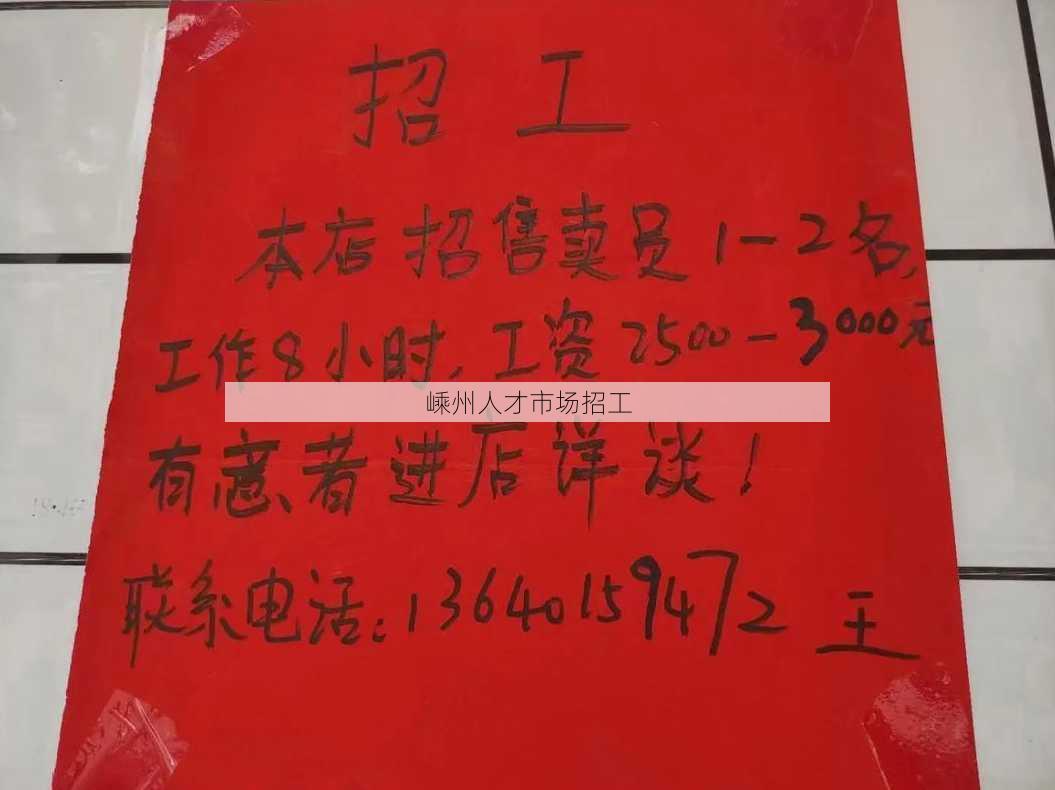 招工
本店招售卖员1-2名,
工作8小时,工资2500-3000元
嵊州人才市场招工
有意者进店详谈!
联系电话:13640159472 王